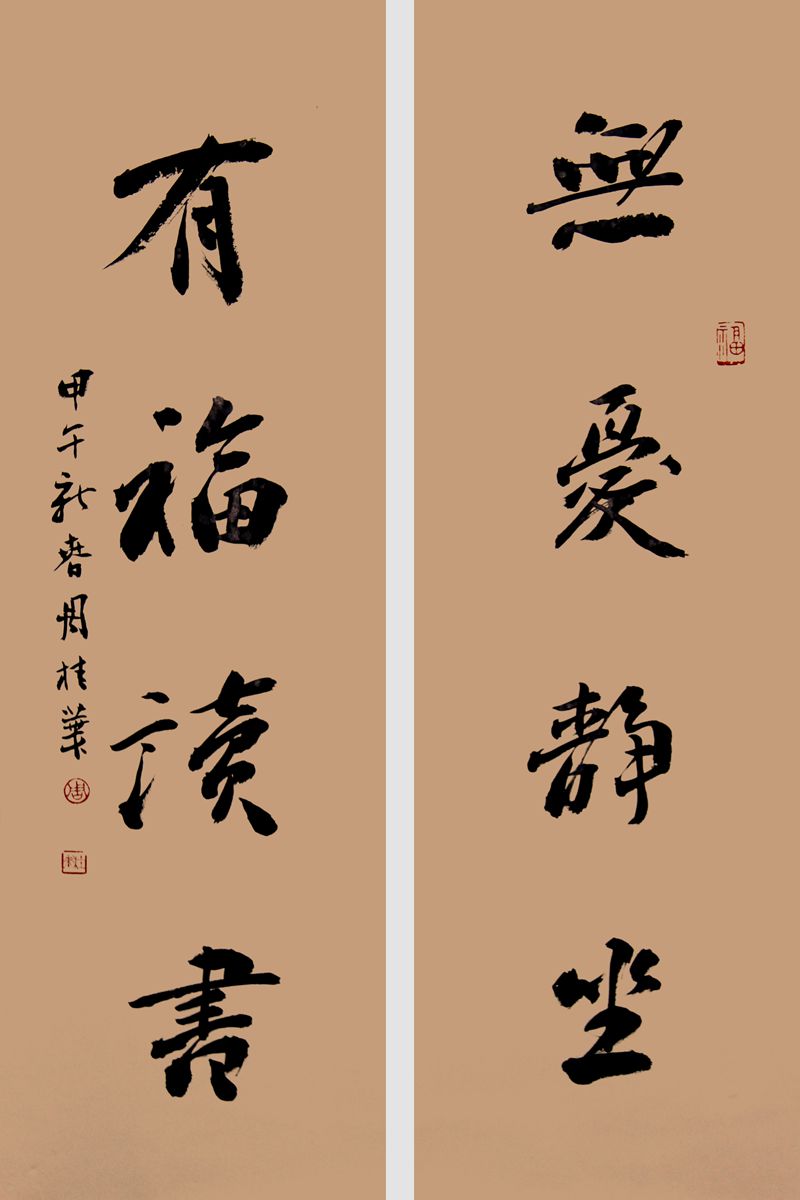 無憂靜坐
福
有福讀書
甲午新春周桂葉
周